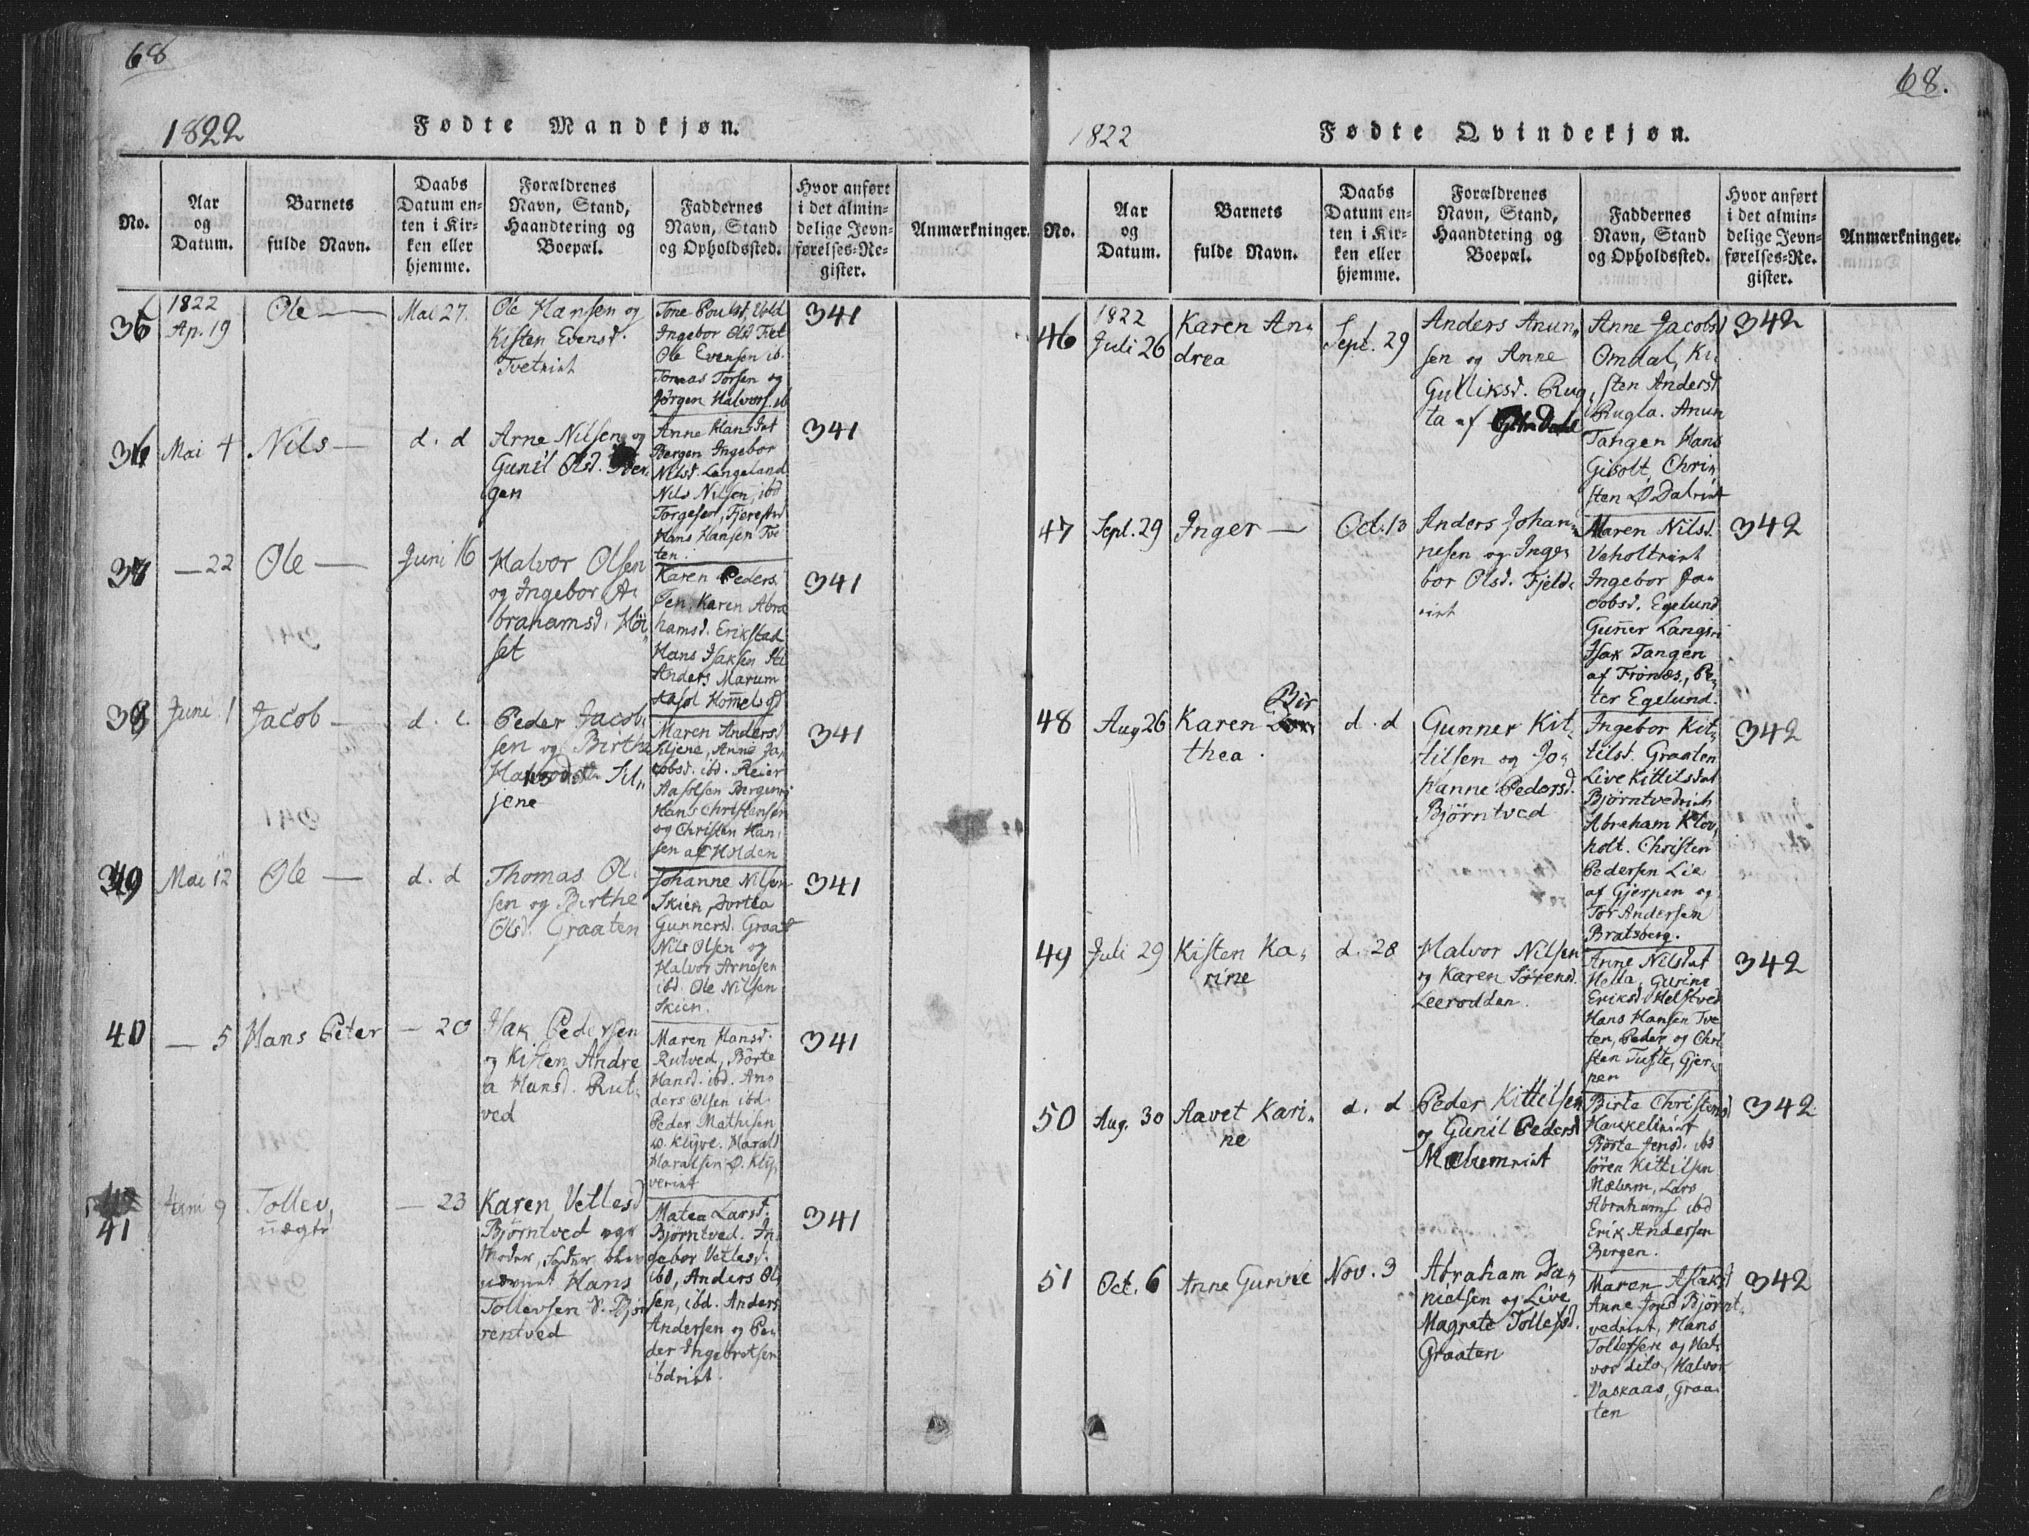 68
1822
Fødte Mandkjøn.
No.
Aar
og
Datum.
Barnets
fulde Navn.
Daabs
Datum en-
ten i Kir-
ken eller
hjemme.
Forældrenes
Navn, Stand,
Haandtering og
Boepæl.
Faddernes
Navn, Stand
og Opholdssted.
Hvor anført
i det almin-
delige Jevn-
førelses-Re-
gister.
Anmærkninger.
1822
Ap. 19
Ole
Mai 27.
Ole Hansen og
Kisten Evensd.
Tvetrist
Ingebor Olsd
Ole Evensen ib.
Tomas Torsen og
Jørgen Halvors. ib
341
36
Mai 4
Nils
d. d
Arne Nilsen og
Gunil Olsd.
gen
Anne Hansdat
Bergen Ingebor
Nilsd. Langeland
Nils Nilsen, ibd
Hans Hansen Tve
ten.
341
37
22
Ole
Juni 16
Halvor Olsen
og Ingebor A-
brahamsd. Høi
set
Karen Peders.
Karen Abra
hamsd. Erikstad
Hans Isaksen
Anders Marum
341
38
Juni 1
Jacob
Peder Jacob.
sen og Birthe
Sil-
jene
Maren Andersd
Siljene, Anne Ja
cobsd. ibd. Reier
Aasolsen
Hans Christensen
og Christen Han.
sen af Holden
341
39
Mai 12
Ole
d. d
Thomas Ol.
sen og Birthe
Olsd. Graaten
Johanne Nilsen
Skien, Dortea
Gunnersd. Graat
Nils Olsen og
Halvor Arnesen
ibd. Ole Nilsen
Skien.
341
40
5
Hans Peter
20
Isak Pedersen
og Kisten Andre
a Hansd. Rut.
ved
Maren Hansd.
Rutved, Børte
Hansd. ibd. An.
ders Olsen ibd.
Peder Mathisen
v. Klyve. Harald
Haralsen Ø. Kly.
verist
341
41
Juni 9
Tollev,
uægte
23
Karen Vetlesd
Bjørntved
Moder, Fader blev
nævnt Hans
Tollevsen V. Bjø
rentved
Matea Larsd.
Bjørntved. In
gebor Vetlesd.
ibd, Anders Ol
sen, ibd. Anders
Andersen og Pe.
der Ingebretsen
ibdrist.
341
68.
1822
Fødte Qvindekjøn.
No.
Aar
og
Datum.
Barnets
fulde Navn.
Daabs
Datum en-
ten i Kir-
ken eller
hjemme.
Forældrenes
Navn, Stand,
Haandtering og
Boepæl.
Faddernes
Navn, Stand
og Opholdssted.
Hvor anført
i det almin-
delige Jevn-
førelses-Re-
gister.
Anmærkninger.
46
1822
Juli 26
Karen An-
drea
Sept. 29
Anders Anun-
sen og Anne
Gulliksd. Rug
ta af
Anne Jacobsd
Omdal, Ki
sten Andersd
Rugla. Anun
Tangen Hans
Gisolt, Chri
sten Ø Dalrist
342
47
Sept. 29
Inger
Oct. 13
Anders Johan-
nesen og Inge
bor Olsd. Fjeld-
rist
Maren Nilsd.
Veholtrist
Ingebor Ja-
cobsd. Egelund
Guner Langri
Isak Tangen
af Fronæs, Pe-
ter Egelund.
342
48
Aug 26
Karen Bir
thea.
d. d
Gunner Kit-
tilsen og Jo-
hanne Pedersd.
Bjørntved
Ingebor Kit-
tilsd. Graaten
Live Kittilsdat
Bjørntvedrist
Abraham Klov
holt. Christen
Pedersen Lie
af Gjerpen og
Tor Andersen
Bratsberg.
342
49
Juli 29
Kisten Ka-
rine
d. 28
Halvor Nilsen
og Karen Sørensd.
Leerodden.
Anne Nilsdat
Heda, Gurine
Eriksd. Melstved
Hans Hansen Tve
ten, Peder og Chri
sten Tufte, Gjer-
pen
342
50
Aug. 30
Aavet Kari-
ne
d. d
Peder Kittilsen
og Gunil Pedersd
Mælumrist
Birte Christensd
Børte Jensd. ibd
Søren Kittilsen
Mælum, Lars
Abrahams ibd
Erik Andersen
Bergen.
342
51
Oct. 6
Anne Gurine
Nov. 3
Abraham Da-
nielsen og Live
Magrete Tollefsd.
Graaten
Maren Aslaksd
Anne Jonsd Bjørnt.
vedrist, Hans
Tollefsen og Hal-
vor dito, Halvor
Vaskaas, Graa-
ten
342